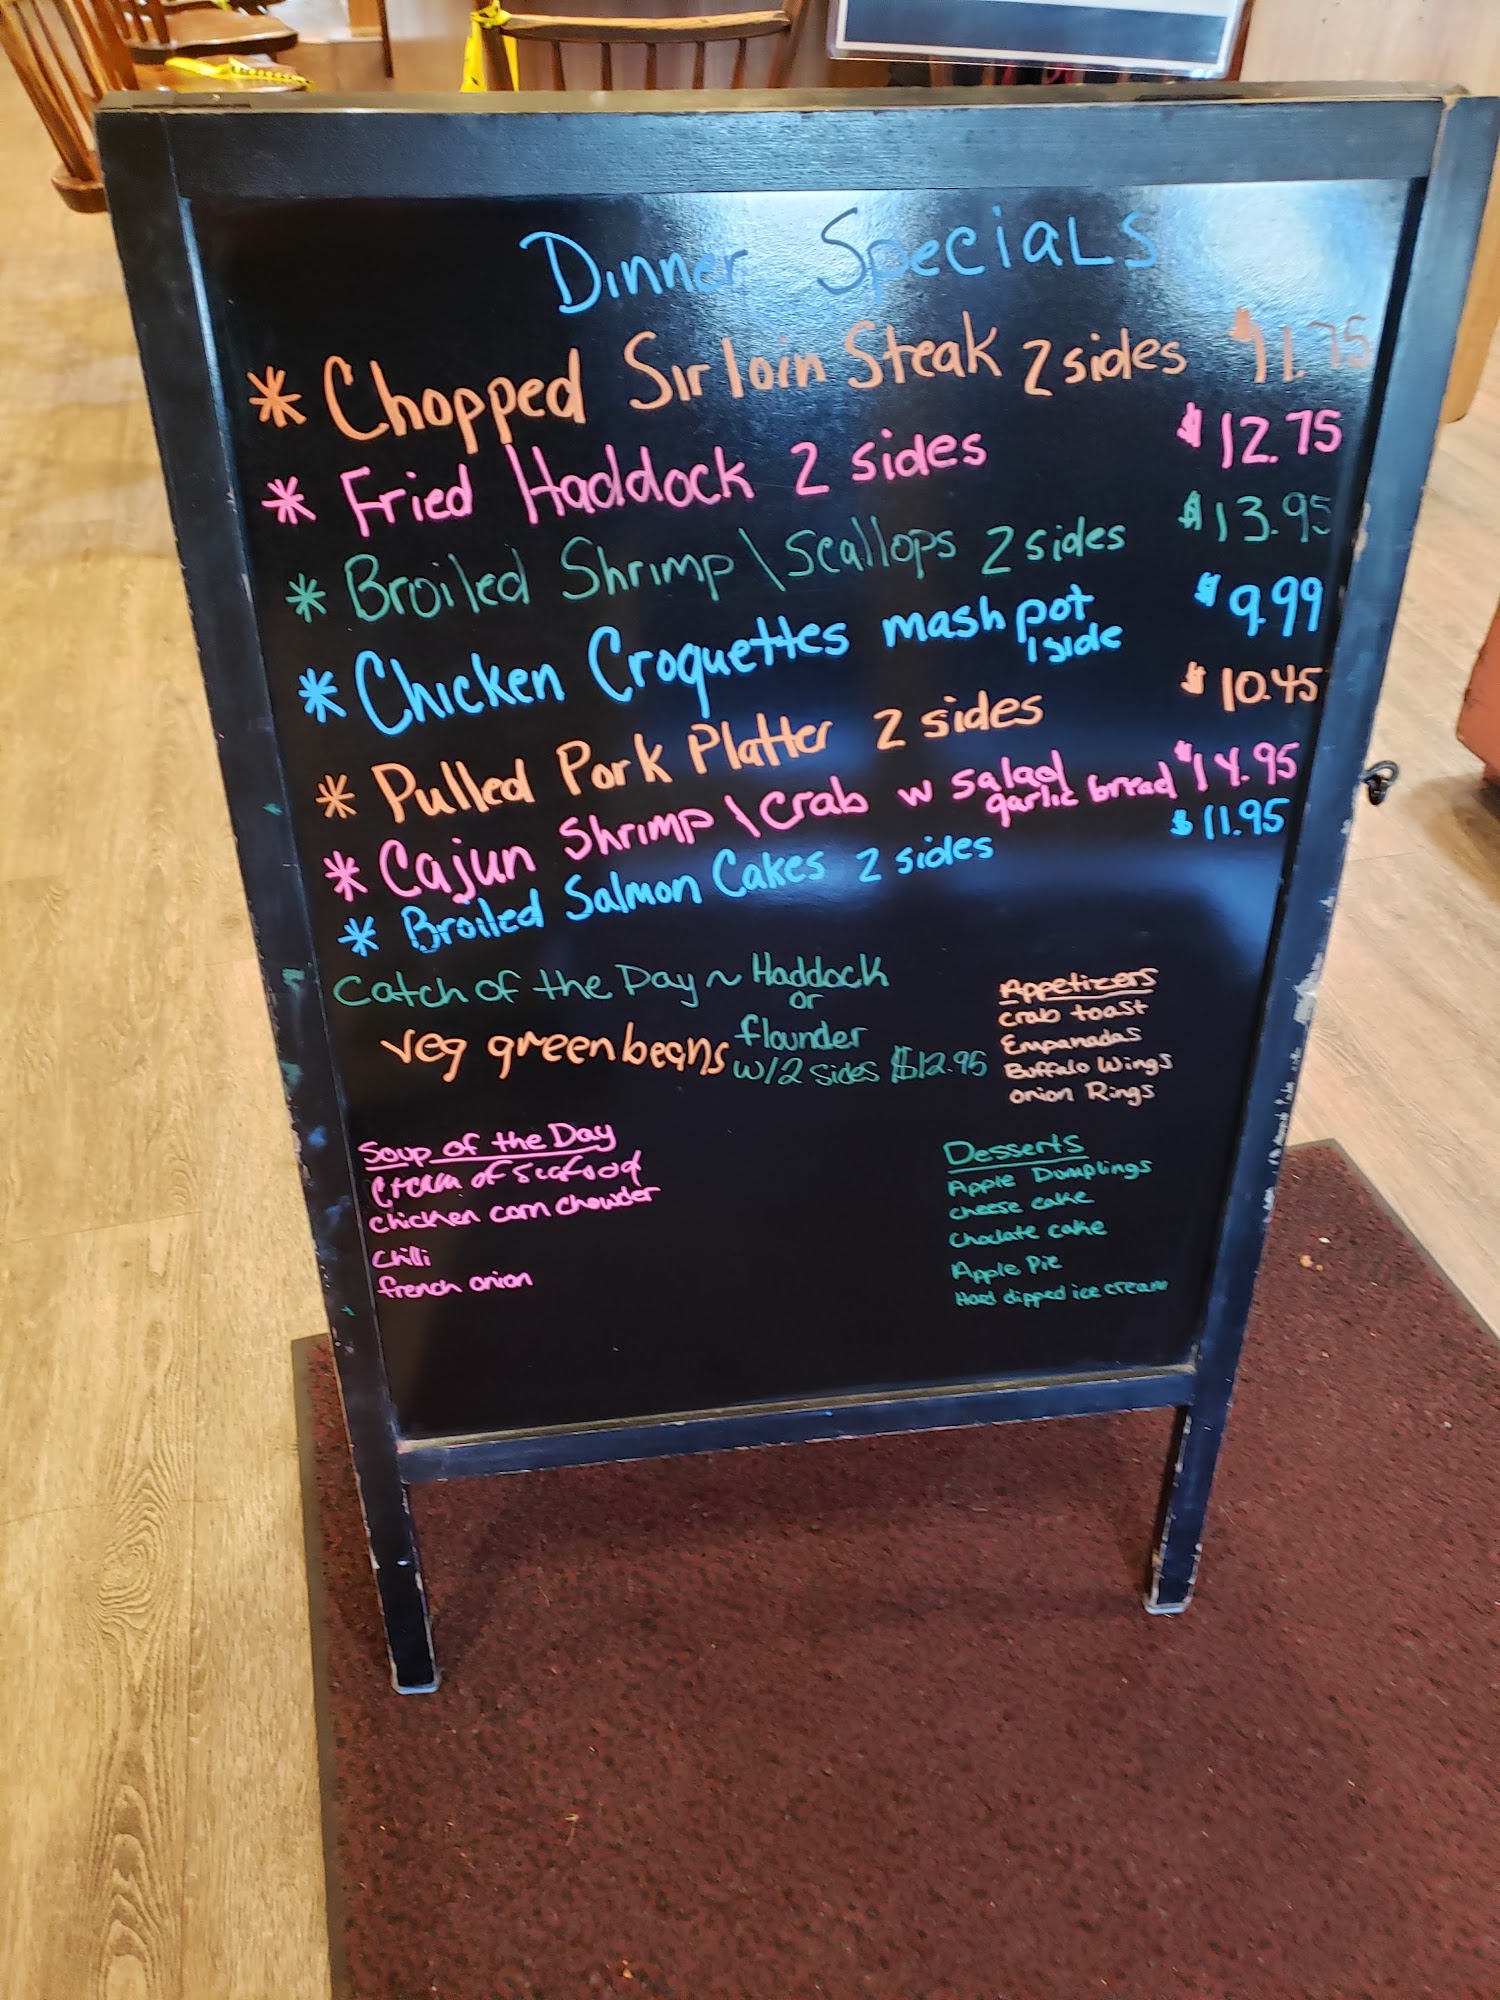 Dinner Specials
* Chopped Sirloin Steak 2 sides $11.75
* Fried Haddock 2 sides $12.75
* Broiled Shrimp \ Scallops 2 sides $13.95
* Chicken Croquettes mash pot $9.99
1 side
* Pulled Pork Platter 2 sides $10.45
* Cajun Shrimp \ Crab w salad $14.95
garlic bread
* Broiled Salmon Cakes 2 sides $11.95
Catch of the Day ~ Haddock
or
flounder
w/2 sides $12.95
Veg green beans
Appetizers
Crab toast
Empanadas
Buffalo Wings
onion Rings
Soup of the Day
Cream of Seafood
chicken corn chowder
Chilli
french onion
Desserts
Apple Dumplings
cheese cake
Choclate cake
Apple Pie
Hand dipped ice cream